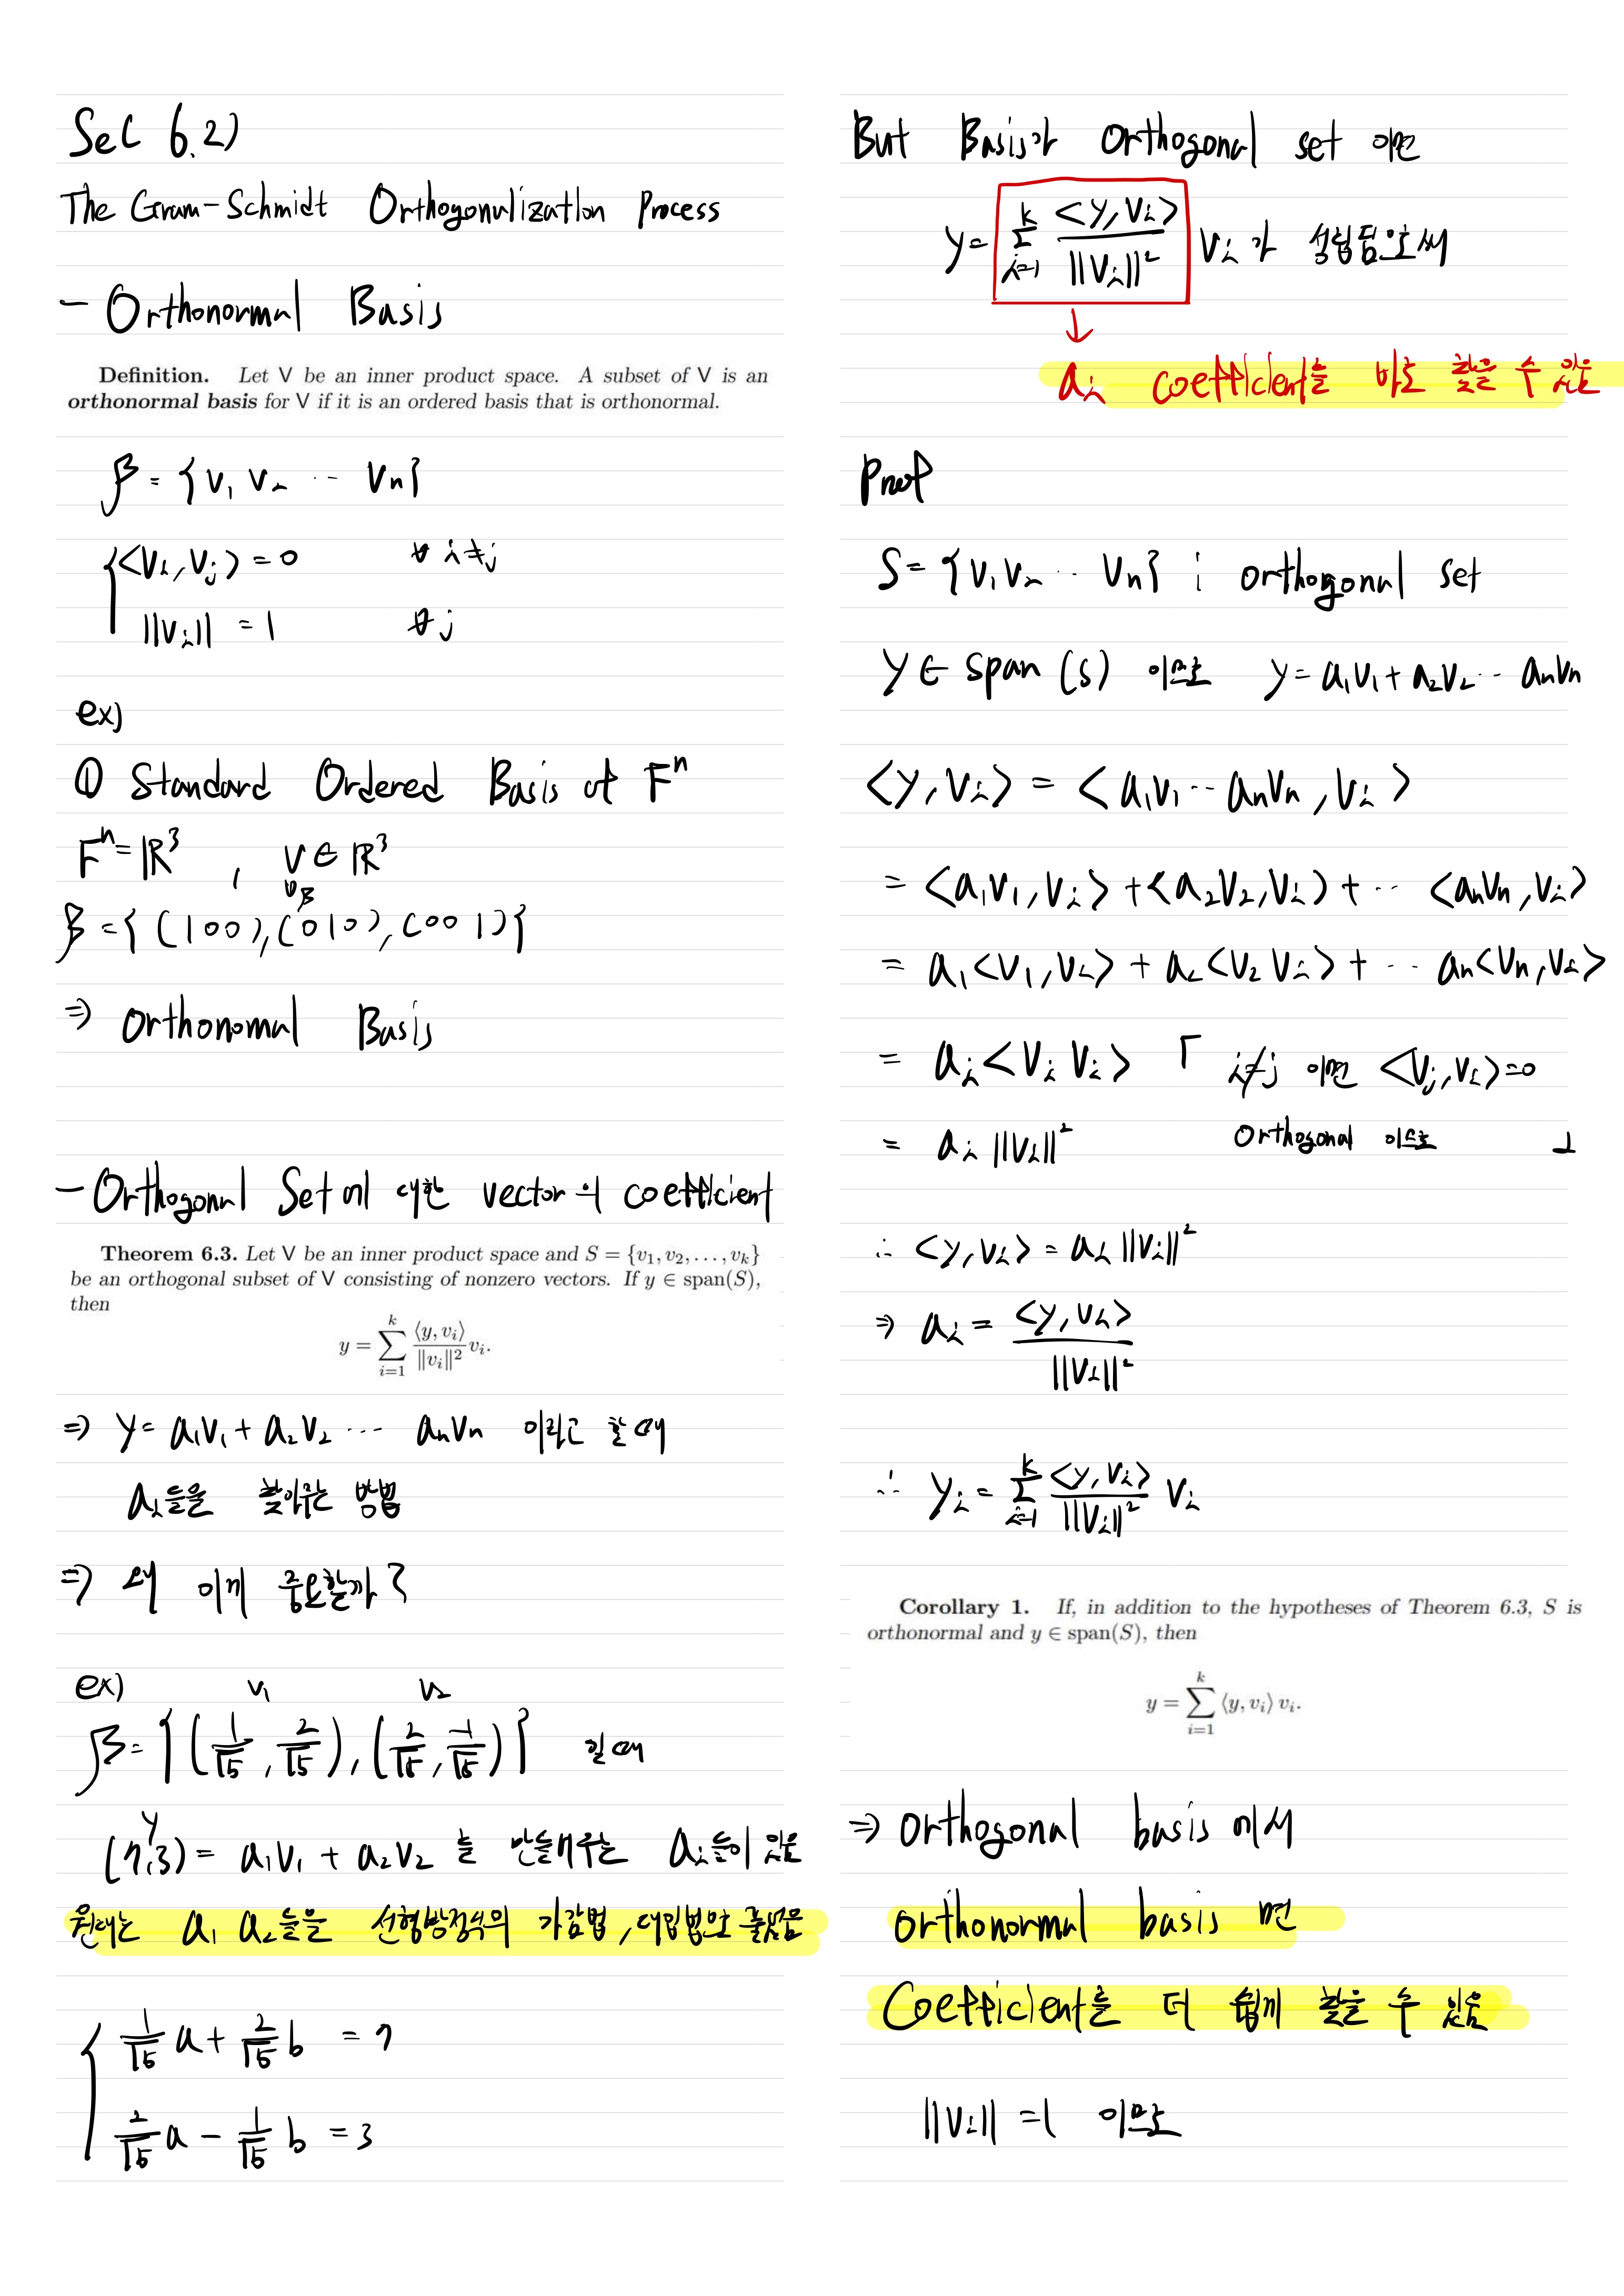 Sec 6.2)
The Gram-Schmidt Orthogonalization Process
- Orthonormal Basis
Definition. Let V be an inner product space. A subset of V is an
orthonormal basis for V if it is an ordered basis that is orthonormal.
β = { v₁ v₂ ⋯ vₙ }
<vᵢ, vⱼ> = 0 ∀ i≠j
||vᵢ|| = 1 ∀ j
ex)
① Standard Ordered Basis of Fⁿ
Fⁿ = ℝ³ , v ∈ ℝ³
β = { (1 0 0), (0 1 0), (0 0 1) }
⇒ Orthonomal Basis
- Orthogonal Set에 대한 vector의 coefficient
Theorem 6.3. Let V be an inner product space and S = {v₁, v₂, …, vₖ}
be an orthogonal subset of V consisting of nonzero vectors. If y ∈ span(S),
then
y = ∑ᵢ₌₁ᵏ ⟨y, vᵢ⟩ / ‖vᵢ‖² vᵢ.
⇒ y = a₁v₁ + a₂v₂ ⋯ aₙvₙ 이라고 할때
aᵢ들을 찾아주는 방법
⇒ 왜 이게 중요할까?
ex) v₁ v₂
β = { (1/√5, 2/√5), (2/√5, -1/√5) } 일때
y
(7,3) = a₁v₁ + a₂v₂ 를 만들어주는 aᵢ들이 있음
원래는 a₁ a₂들을 선형방정식의 가감법, 대입법으로 풀었음
1/√5 a + 2/√5 b = 7
2/√5 a - 1/√5 b = 3
But Basis가 Orthogonal set 이면
y = ∑ᵢ₌₁ᵏ <y, vᵢ> / ||vᵢ||² vᵢ 가 성립됨으로써
↓
aᵢ coefficient를 바로 찾을 수 있음
Proof
S = { v₁ v₂ ⋯ vₙ } : orthogonal set
y ∈ span (S) 이므로 y = a₁v₁ + a₂v₂ ⋯ aₙvₙ
<y, vᵢ> = <a₁v₁ ⋯ aₙvₙ, vᵢ>
= <a₁v₁, vᵢ> + <a₂v₂, vᵢ> + ⋯ <aₙvₙ, vᵢ>
= a₁<v₁, vᵢ> + a₂<v₂ vᵢ> + ⋯ aₙ<vₙ, vᵢ>
= aᵢ<vᵢ vᵢ> 「 i≠j 이면 <vⱼ, vᵢ> = 0
= aᵢ ||vᵢ||² Orthogonal 이므로 」
∴ <y, vᵢ> = aᵢ ||vᵢ||²
⇒ aᵢ = <y, vᵢ> / ||vᵢ||²
∴ yᵢ = ∑ᵢ₌₁ᵏ <y, vᵢ> / ||vᵢ||² vᵢ
Corollary 1. If, in addition to the hypotheses of Theorem 6.3, S is
orthonormal and y ∈ span(S), then
y = ∑ᵢ₌₁ᵏ ⟨y, vᵢ⟩ vᵢ.
⇒ orthogonal basis 에서
orthonormal basis 면
Coefficient를 더 쉽게 찾을 수 있음
||vᵢ|| = 1 이므로